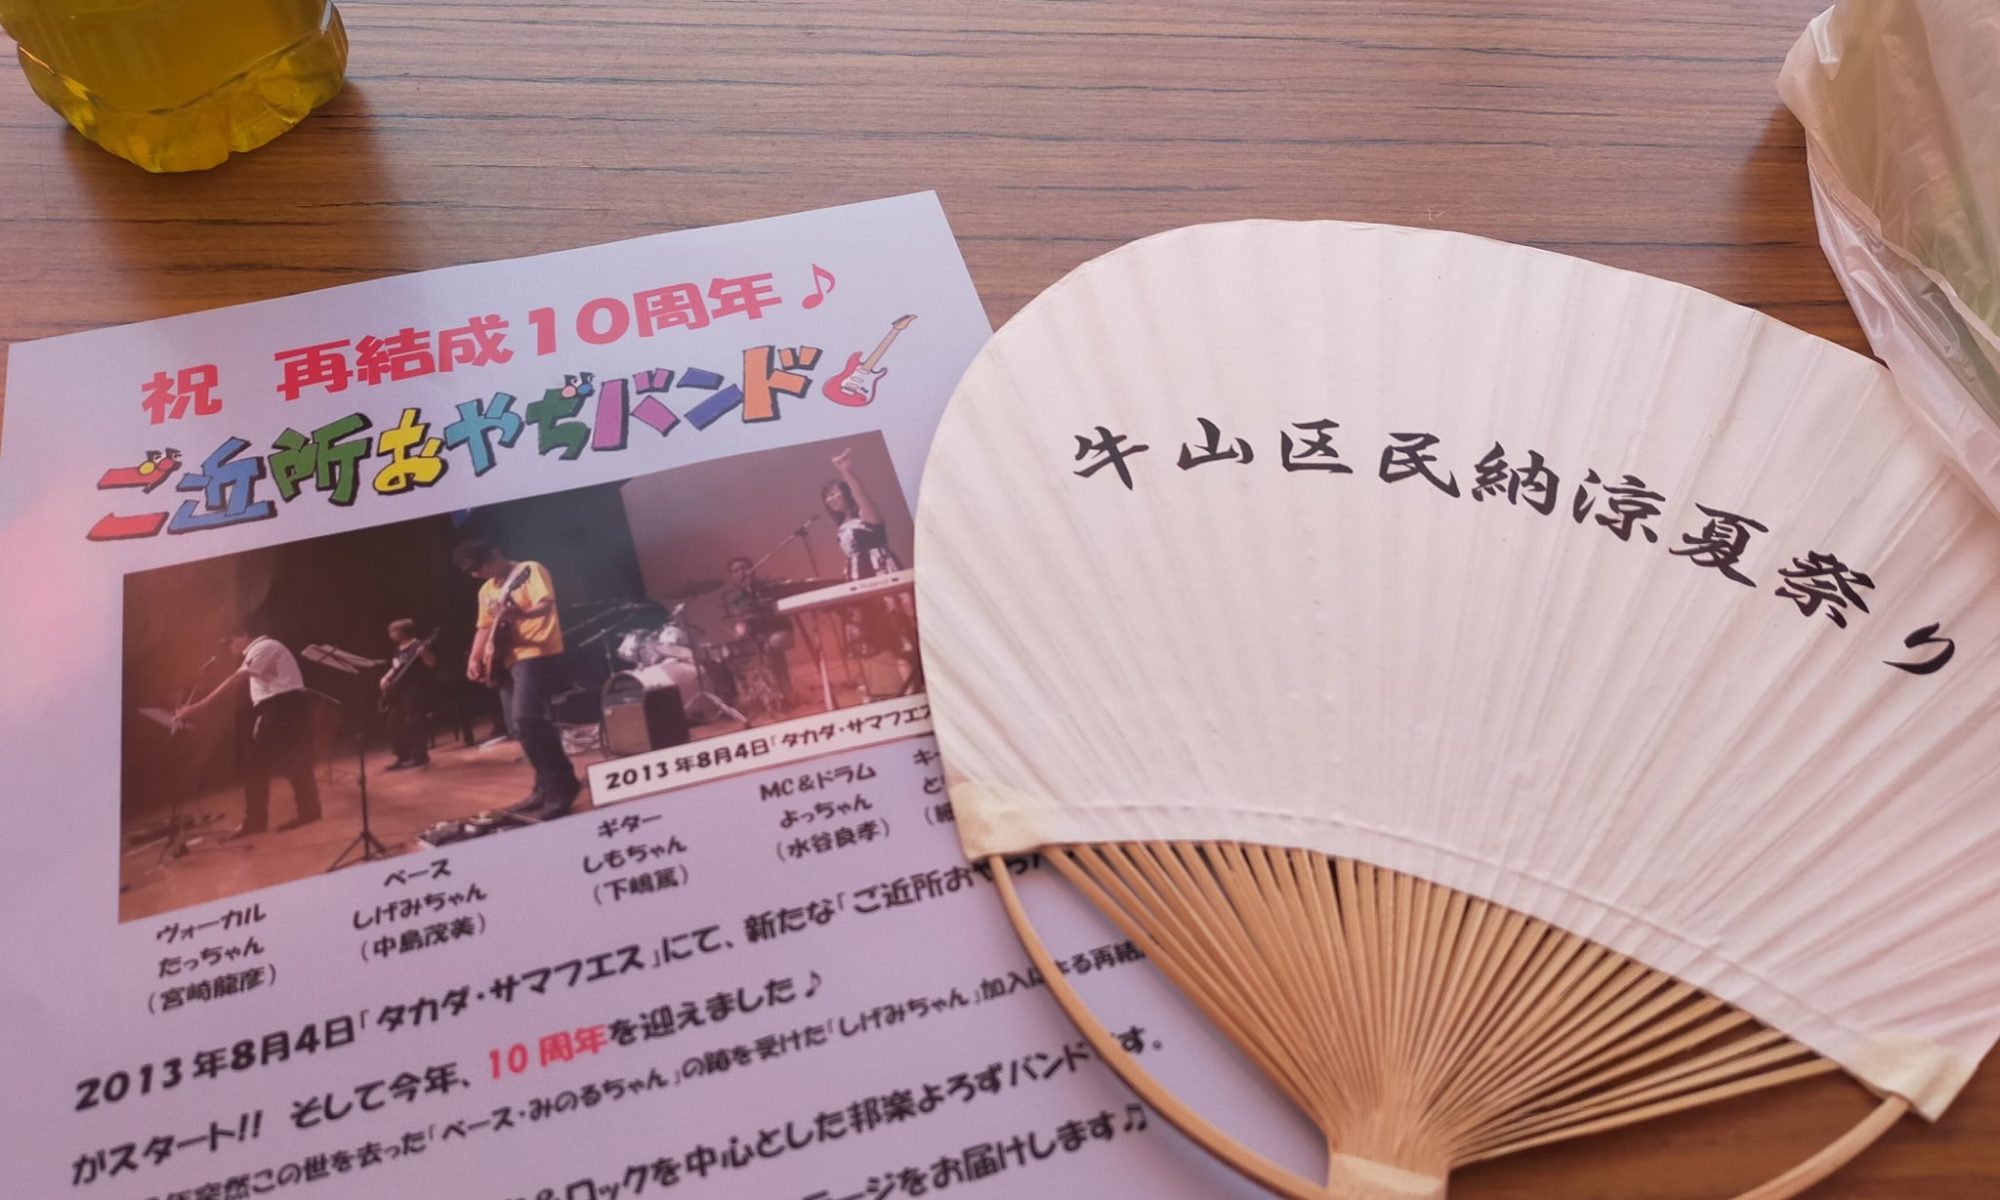 祝 再結成10周年♪
ご近所おやぢバンド
2013年8月4日「タカダ・サマフェス
ヴォーカル
たっちゃん
(宮崎龍彦)
ベース
しげみちゃん
(中島茂美)
ギター
しもちゃん
(下嶋篤)
MC&ドラム
よっちゃん
(水谷良孝)
キー
2013年8月4日「タカダ・サマフェス」にて、新たな「ご近所おやぢバ
がスタート!! そして今年、10周年を迎えました♪
年突然この世を去った「ベース・みのるちゃん」の跡を受けた「しげみちゃん」加入による再結
&ロックを中心とした邦楽よろずバンドです。
テージをお届けします♫
牛山区民納涼夏祭り
Roland